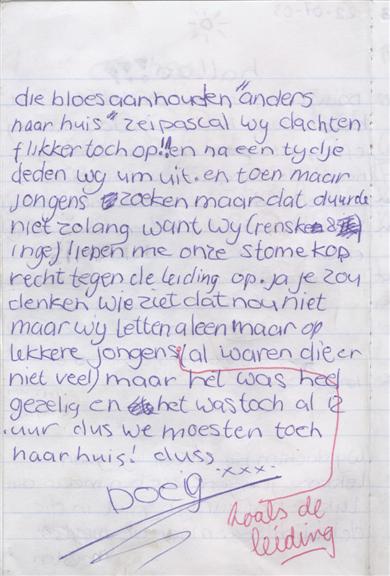 die bloes aanhouden "anders
naar huis" zei pascal wy dachten
flikker toch op!! en na een tydje
deden wy um uit. en toen maar
jongens zoeken maar dat duurde
niet zo lang want wy (renske &
inge) liepen me onze stome kop
recht tegen de leiding op. ja je zou
denken wie ziet dat nou niet
maar wy letten aleen maar op
lekkere jongens (al waren die er
niet veel) maar het was heel
gezelig en het was toch al 12
uur dus we moesten toch
naar huis! duss
.xxx.
DOEG
zoals de
leiding